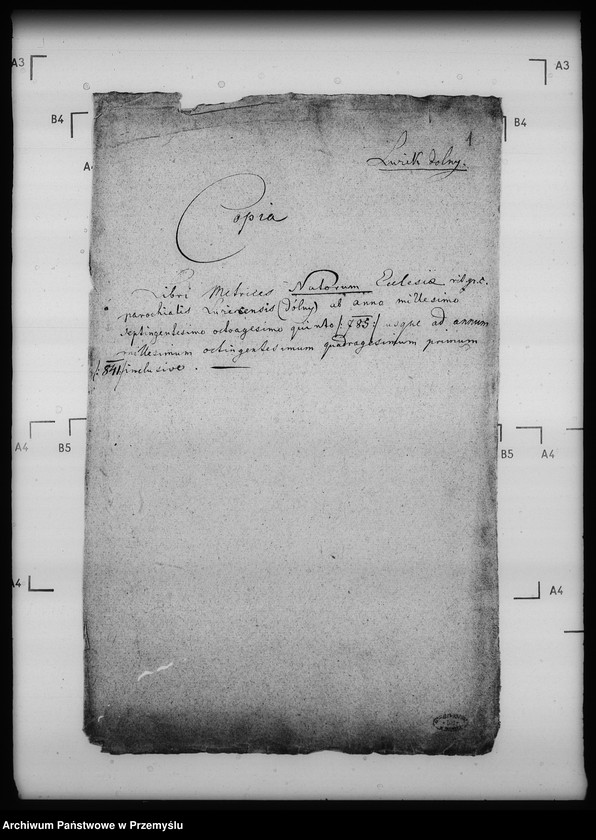 A3
A3
B4
B4
A4
1
Łuzek dolny.
Copia
Libri Metrices Natorum Ecclesiæ rit. gr. c.
parochialis Łuzecensis (Dólny) ab anno millesimo
septingentesimo octoagesimo quinto /: 785 :/ usque ad annum
millesimum octingentesimum quadragesimum primum
/: 841 :/ inclusive.
A4
B5
B5
A4
A4
A4
Archiwum Państwowe w Przemyślu